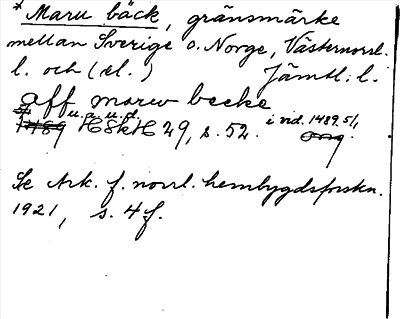 * Maru bäck, gränsmärke
mellan Sverige o. Norge, Västernorrl.
l. och (el.) Jämtl. l.
aff marw becke
1489 u. å. u. d. HSkH 29, s. 52. i vid. 1489 5/1, orig.
Se Ark. f. norrl. hembygdsforskn.
1921, s. 4 f.